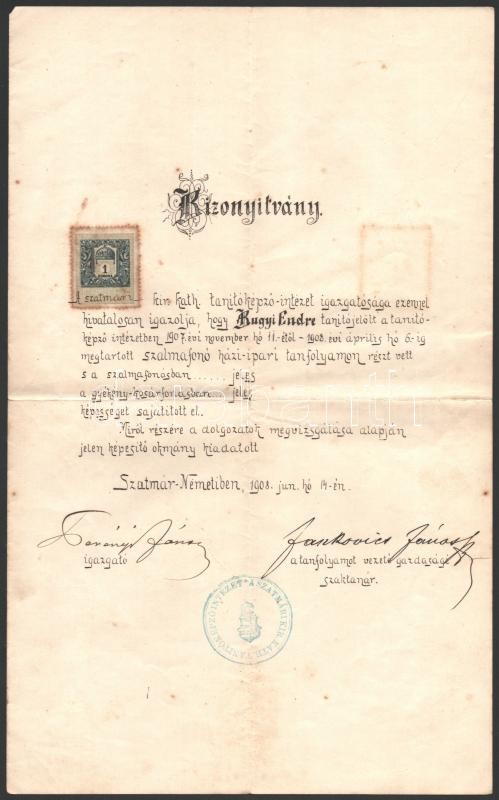 Bizonyitvány.
1
A szatmári kir. kath. tanitóképző-intézet igazgatósága ezennel
hivatalosan igazolja, hogy Rugyi Endre tanitójelölt a tanitó-
képző intézetben 1907. évi november hó 11.-étől - 1908. évi április hó 6.-ig
megtartott szalmafonó házi-ipari tanfolyamon részt vett
s a szalmafonásban ...... jeles
a gyékény-kosárfonásban ... jeles
képességet sajátitott el.
Miről részére a dolgozatok megvizsgálása alapján
jelen képesitő okmány kiadatott
Szatmár-Németiben, 1908. jun. hó 14-én.
János
Jankovics János
igazgató
a tanfolyamot vezető gazdasági
szaktanár.
A SZATMÁRI KIR. KATH. TANITÓKÉPZŐINTÉZET